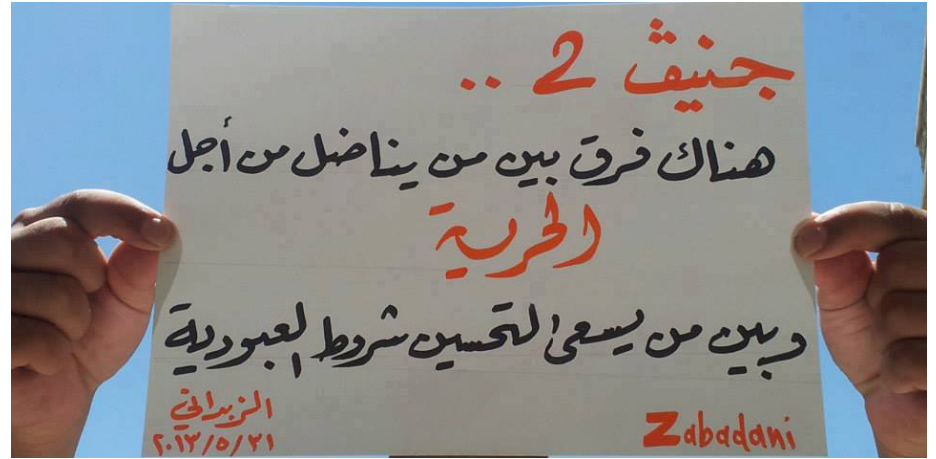 جنيڤ 2 ..
هناك فرق بين من يناضل من أجل
الحرية
وبين من يسعى لتحسين شروط العبودية
الزبداني
٢٠١٣/٥/٣١
Zabadani